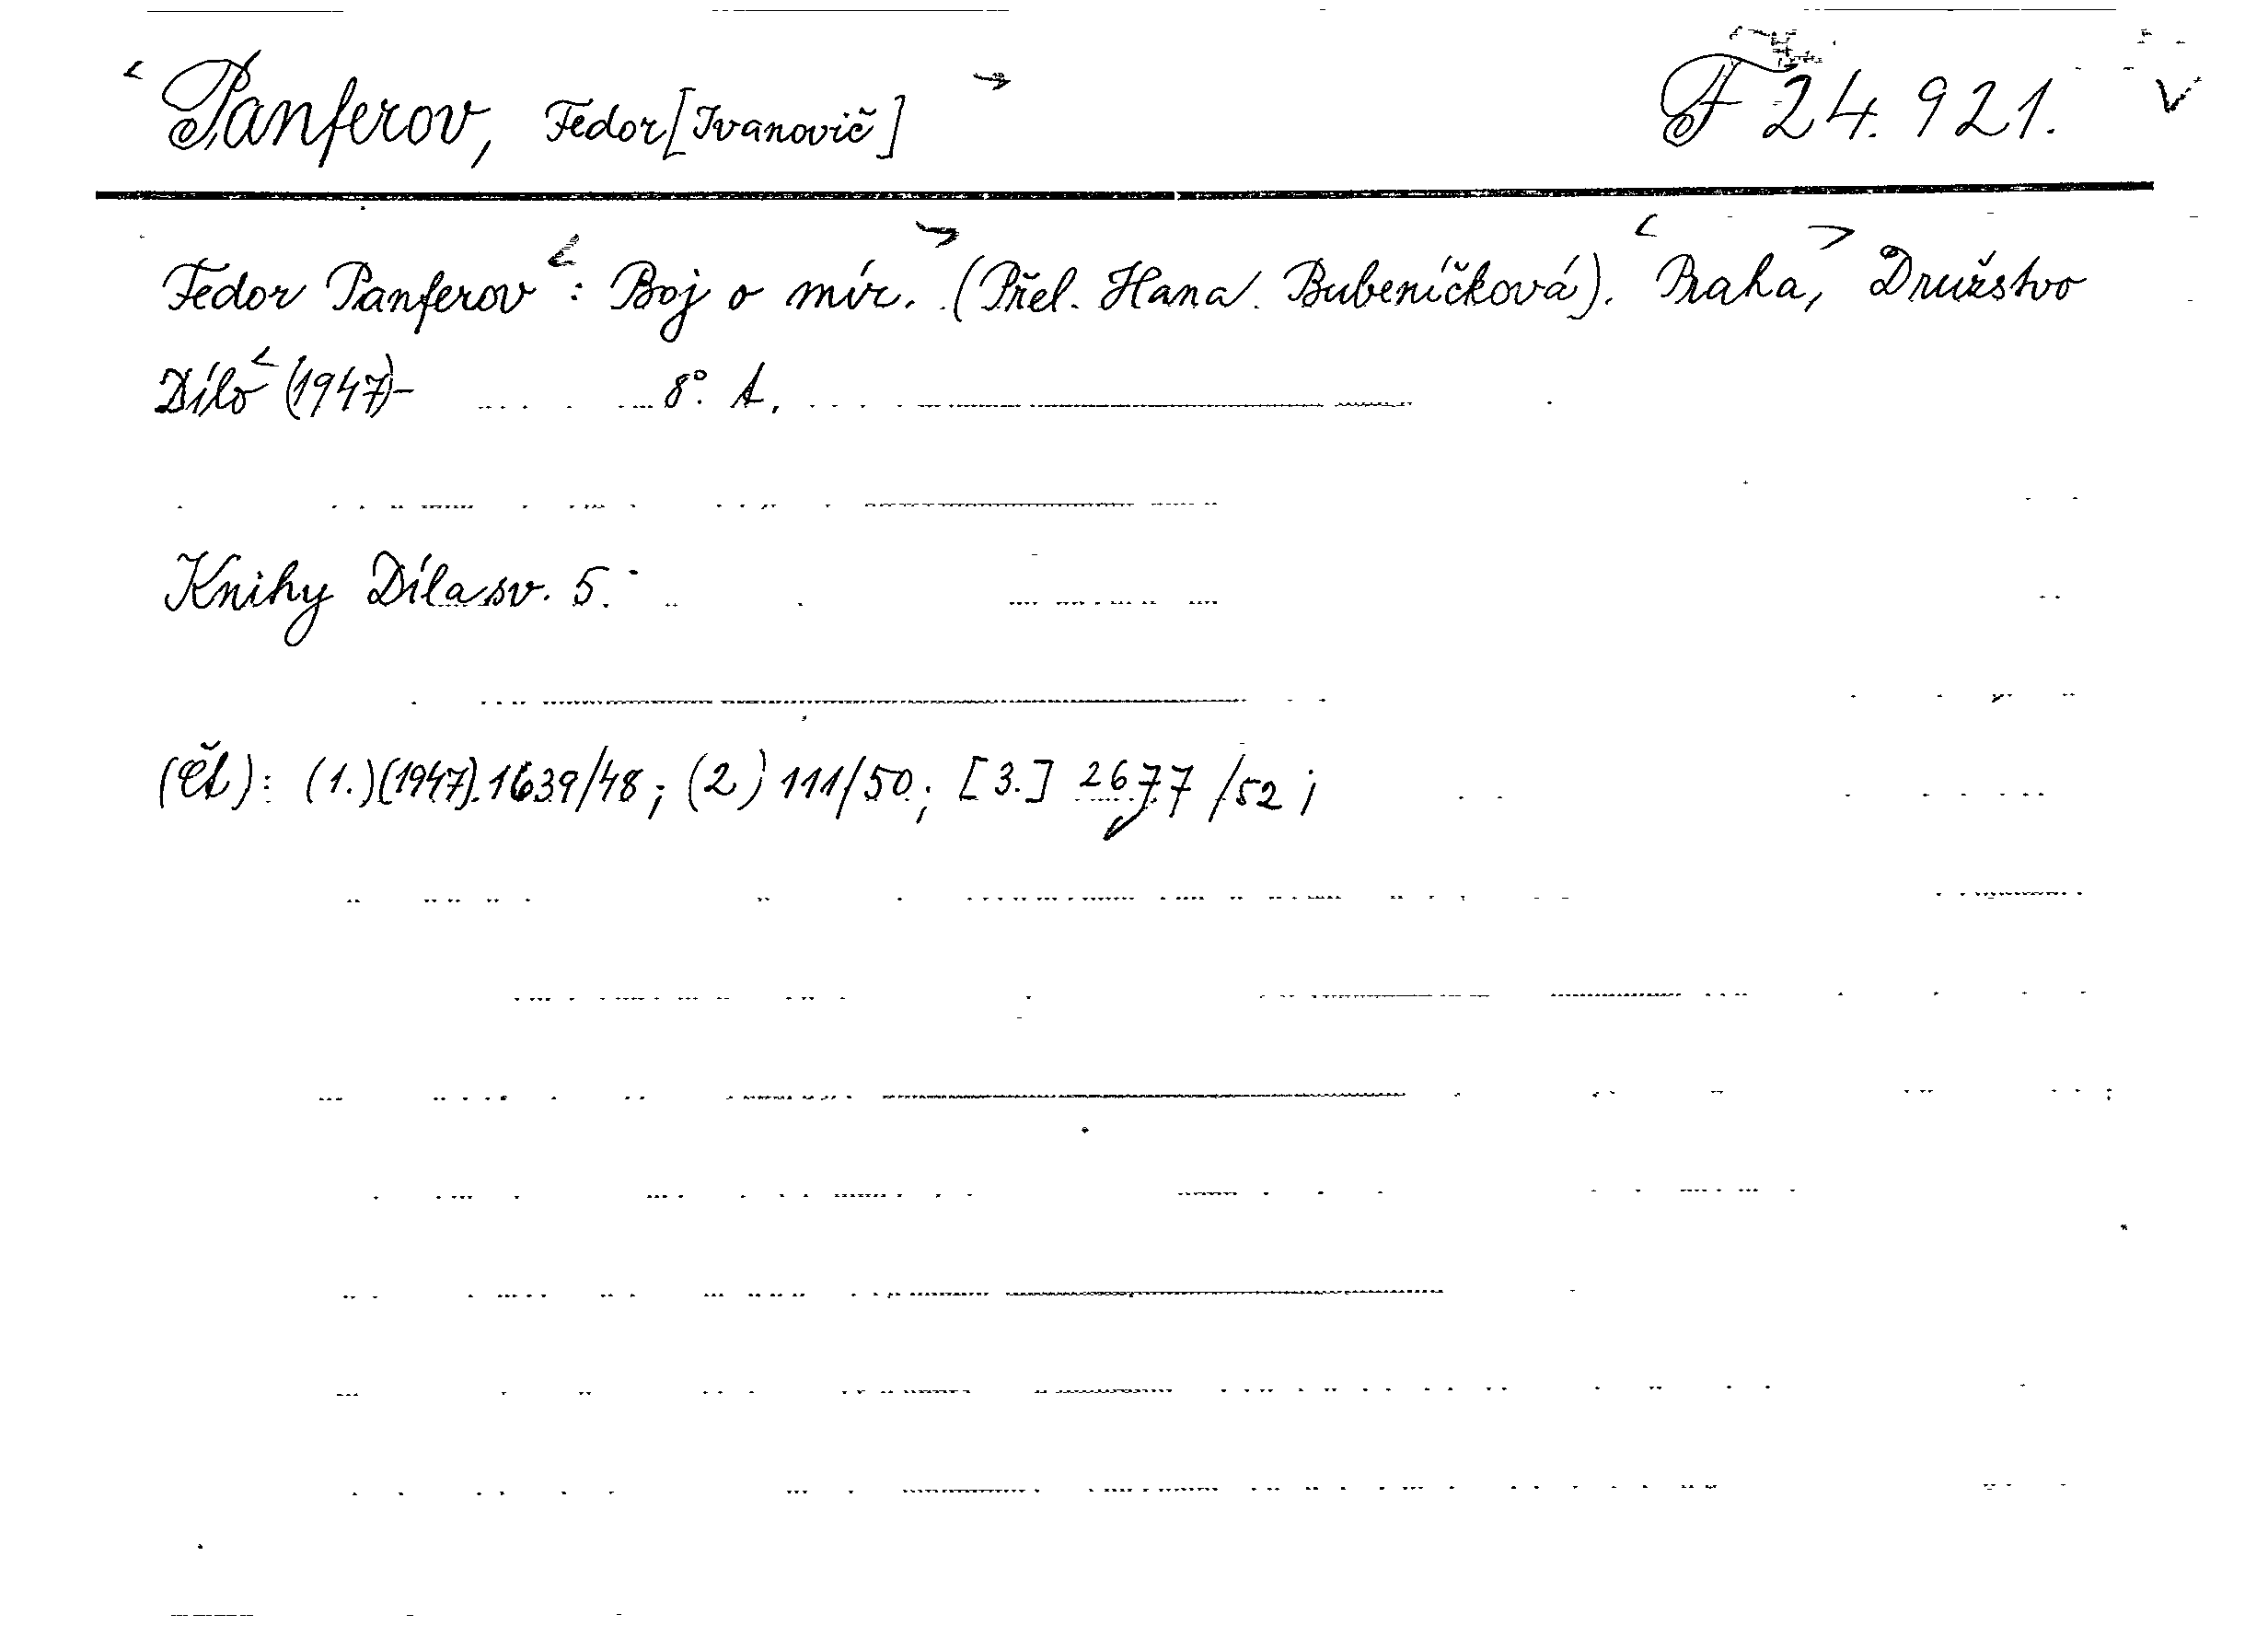 Panferov, Fedor [Ivanovič] F 24.921.
Fedor Panferov: Boj o mír. (Přel. Hana Bubeníčková). Praha, Družstvo
Dílo (1947)- 8°. A.
Knihy Díla sv. 5.
(čt): (1.)(1947). 1639/48; (2) 111/50; [3.] 2677/52;